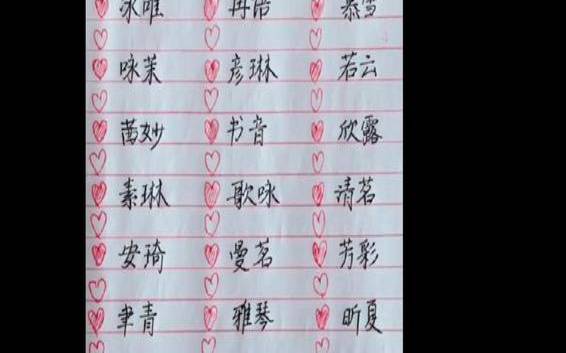 咏茉 彦琳 若云
茜妙 书音 欣露
素琳 歌咏 请茗
安琦 曼茗 芳彩
聿青 雅琴 昕夏